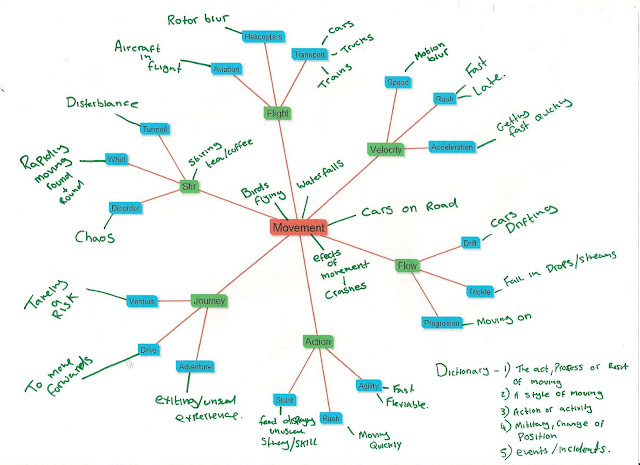 Rotor blur
Helicopters
Cars
Trucks
Trains
Transport
Aircraft
in
flight
Aviation
Flight
Motion
blur
Speed
Fast
Late.
Rush
Getting
fast quickly
Acceleration
Velocity
Disterblance
Turmoil
Rapidley
moving
round
+
Round
Whirl
Stiring
tea/coffee
Stir
Disorder
Chaos
Birds
flying
Waterfalls
Movement
Cars on Road
efects
of
movement
Crashes
Cars
Drifting
Drift
Flow
Trickle
Fall in Drops/streams
Progresion
Moving on
Takeing
a
Risk
Venture
Journey
Drive
To move
forwards
Adventure
exiting/unsual
experience.
Action
Agility
Fast
Flexiable.
Stunt
displaying
unusual
/skill
Rush
Moving
Quickly
Dictionary - 1) The act, Prosess or Result
of moving
2) A style of moving
3) Action or activity
4) Military, Change of
Position
5) events/incidents.